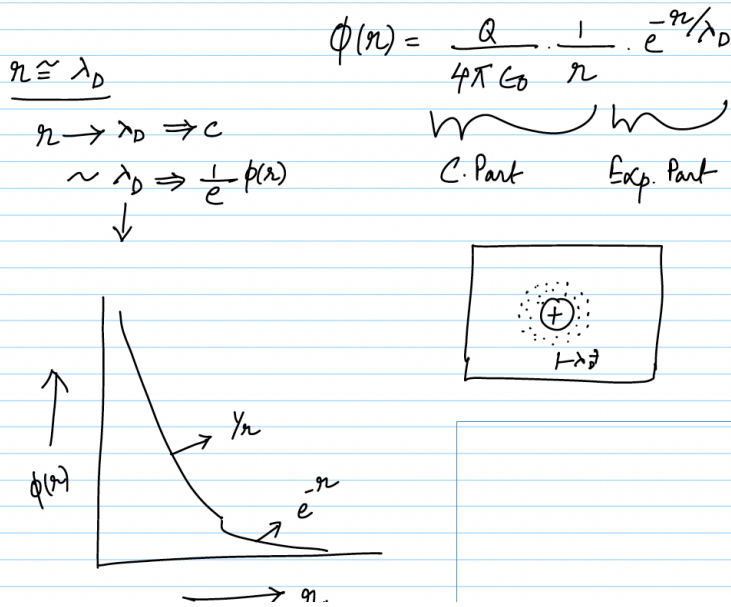 ϕ(r) = Q/4πϵ₀ · 1/r · e^(-r/λ_D)
C. Part Exp. Part
r ≅ λ_D
r → λ_D ⇒ C
~ λ_D ⇒ 1/e ϕ(r)
↓
+
λ_D
1/r
e^(-r)
ϕ(r)
r